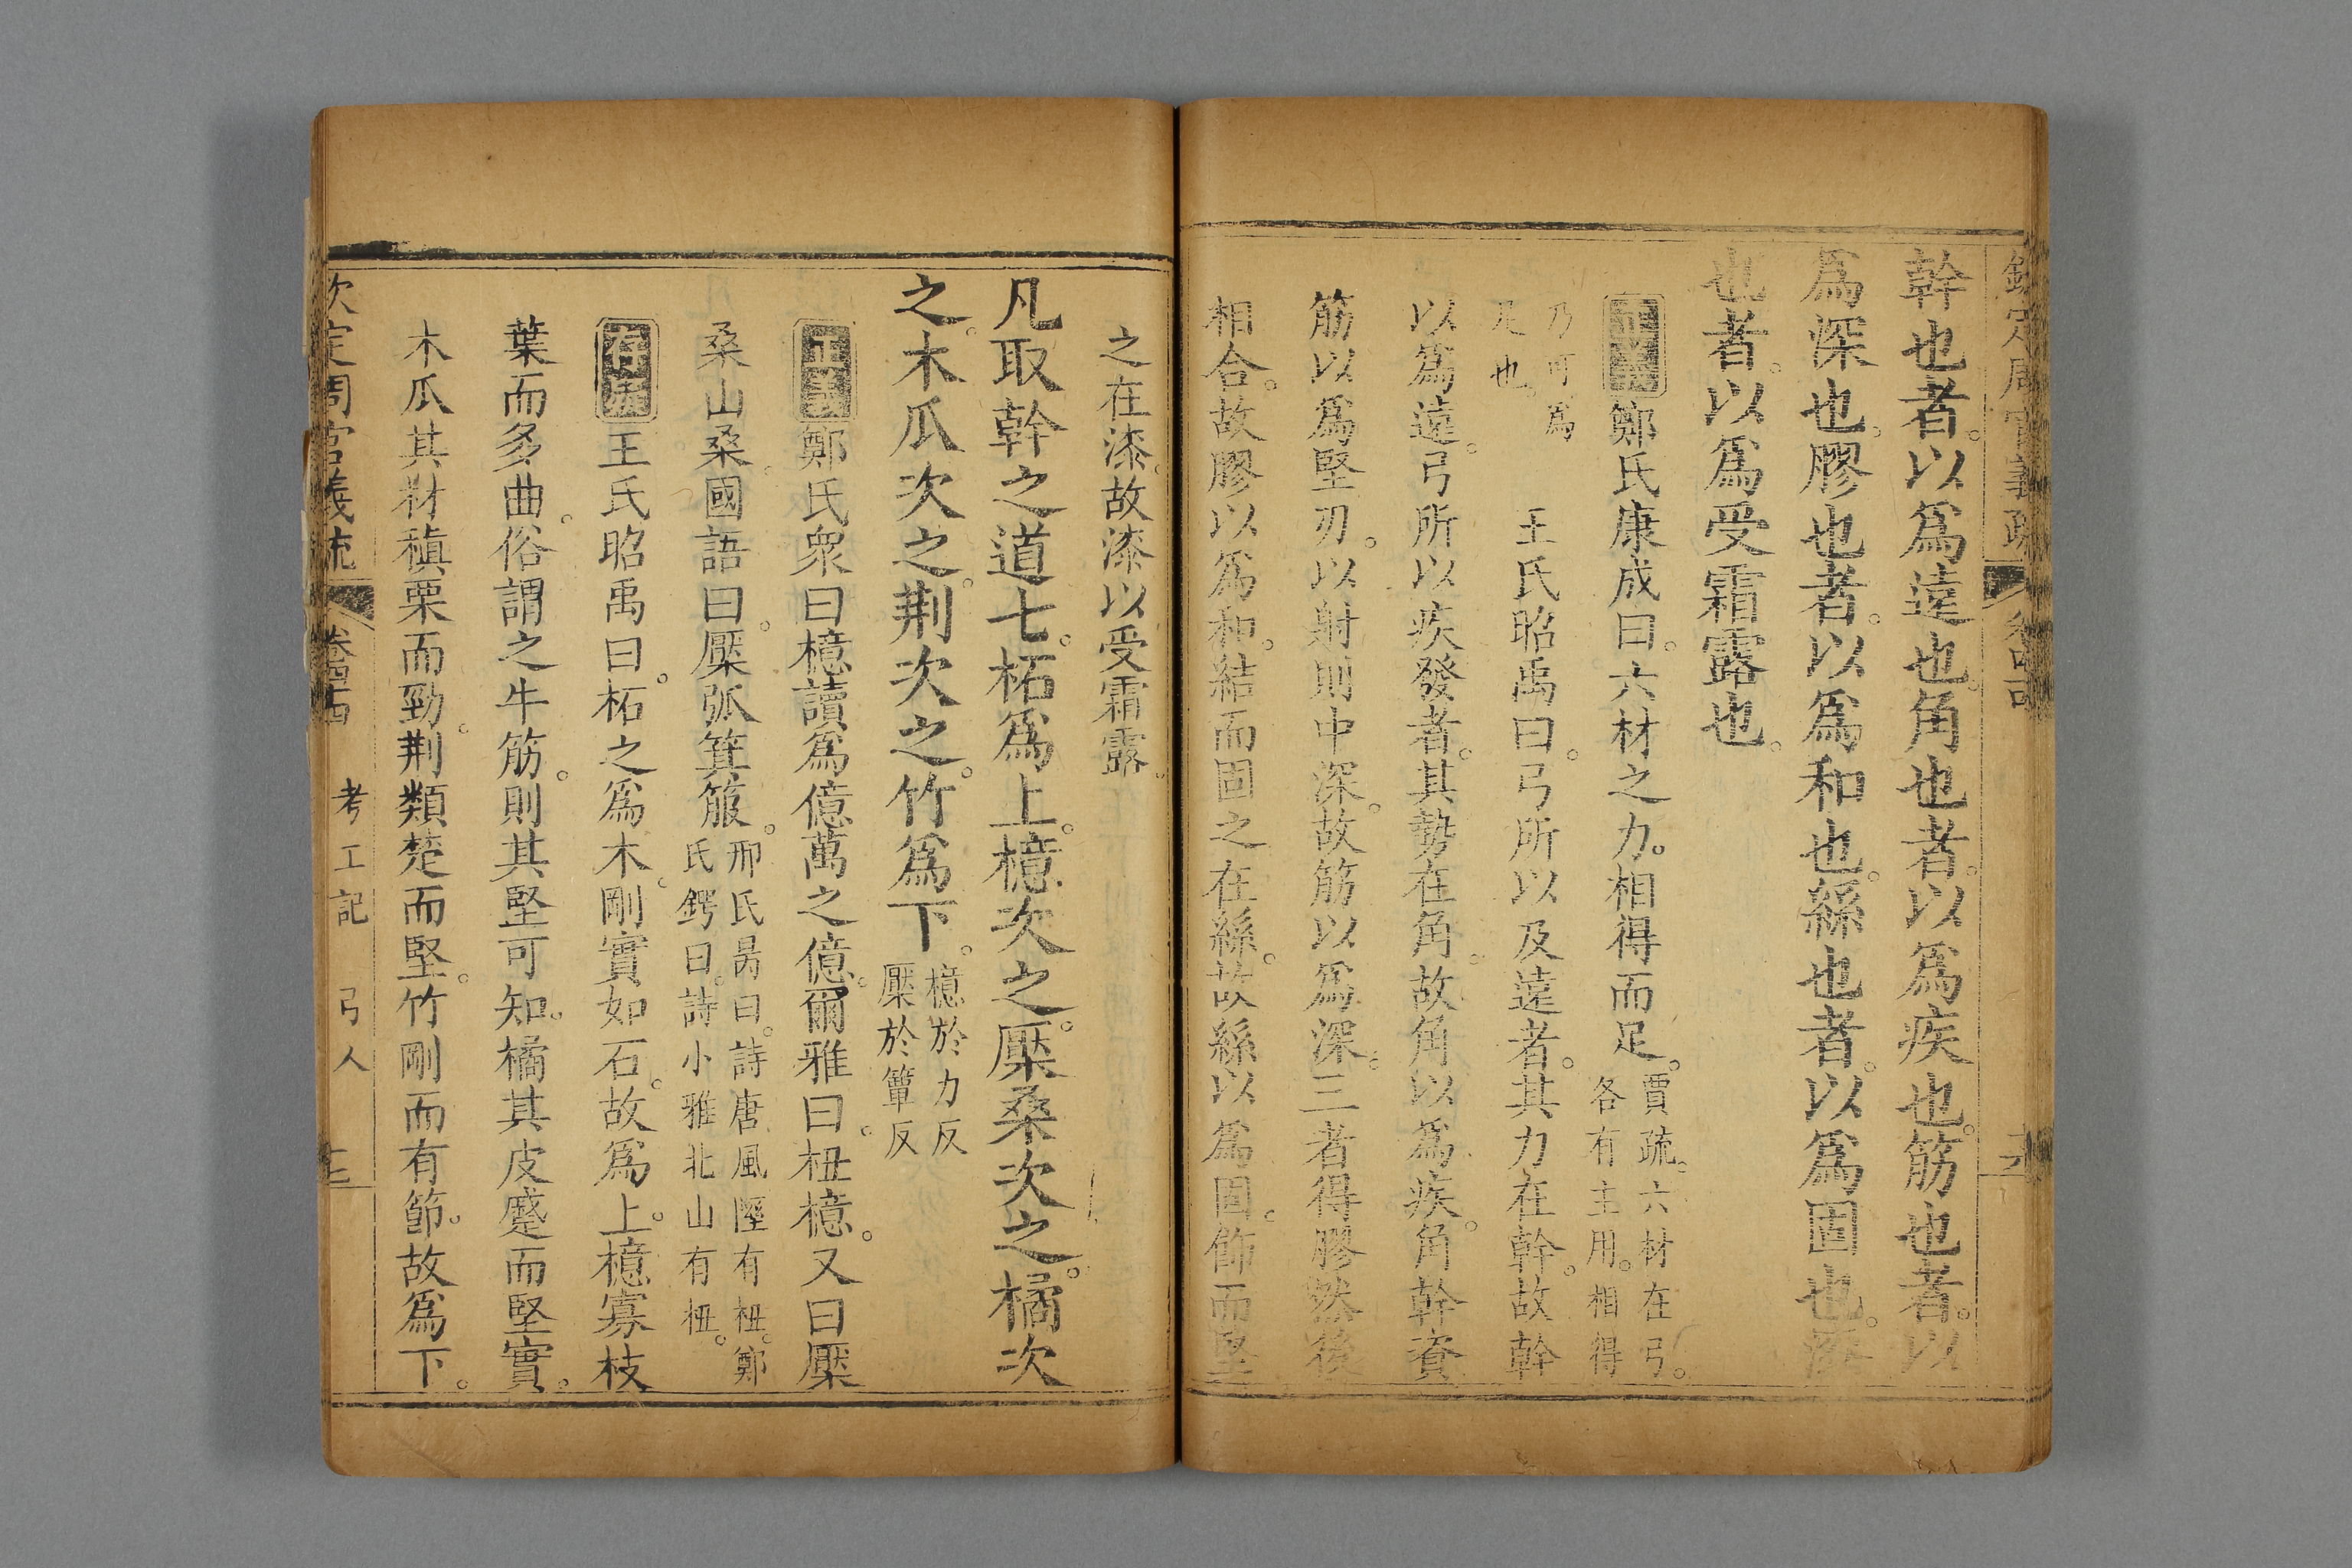 幹也者。以爲遠也。角也者。以爲疾也。筋也者。以
爲深也。膠也者。以爲和也。絲也者。以爲固也。漆
也者。以爲受霜露也。
鄭氏康成曰。六材之力。相得而足。賈疏。六材在弓。各有主用。相得
乃可爲足也。王氏昭禹曰。弓所以及遠者。其力在幹。故幹
以爲遠。弓所以疾發者。其勢在角。故角以爲疾。角幹資
筋以爲堅刃。以射則中深。故筋以爲深。三者得膠然後
相合。故膠以爲和。結而固之在絲。故絲以爲固。飾而堅
之在漆。故漆以受霜露。
凡取幹之道七。柘爲上。檍次之。檿桑次之。橘次
之。木瓜次之。荆次之。竹爲下。檍於力反檿於簟反
正義鄭氏衆曰檍讀爲億萬之億。爾雅曰。杻檍。又曰檿
桑山桑。國語曰。檿弧箕箙。邢氏昺曰。詩唐風隰有杻。鄭氏鍔曰。詩小雅北山有杻。
存疑王氏昭禹曰。柘之爲木。剛實如石。故爲上。檍寡枝
葉而多曲。俗謂之牛筋。則其堅可知。橘其皮蹙而堅實。
木瓜其材稹栗而勁。荆類楚而堅。竹剛而有節。故爲下。
欽定周官義疏
考工記 弓人